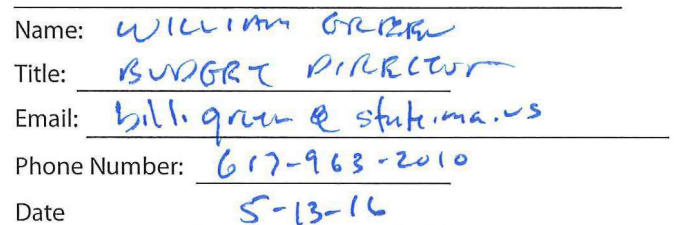 Name: WILLIAM GREEN
Title: BUDGET DIRECTOR
Email: bill.green@state.ma.us
Phone Number: 617-963-2010
Date 5-13-16